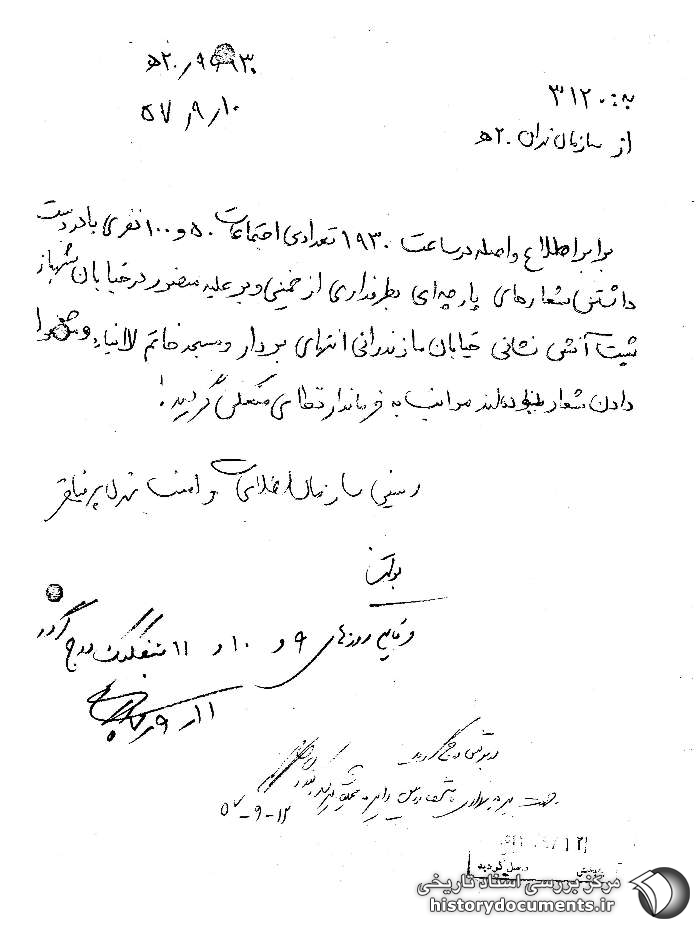 ۲۰ﻫ ر ۹۹۳۰
۵۷ ر ۹ ر ۱۰
به: ۳۱۲۰
از سازمان تهران ۲۰ﻫ
برابر اطلاع واصله در ساعت ۱۹۳۰ تعدادی اجتماعات ۵۰ و ۱۰۰ نفری با در دست
داشتن شعارهای پارچه‌ای بطرفداری از خمینی و بر علیه منصور در خیابان شهباز
ثبت آتش نشانی خیابان مازندرانی انتهای بردار و مسجد خاتم الانبیاء
دادن شعار بوده‌اند مراتب به فرماندار نظامی منعکس گردید.
رئیس سازمان اطلاعات و امنیت تهران پرنیانفر
بولتن
وقایع روزهای ۹ و ۱۰ و ۱۱ درج گردد
۱۱ ر ۹
در بولتن درج گردید
جهت بهره برداری
۵۷-۹-۱۲
مرکز بررسی اسناد تاریخی
historydocuments.ir